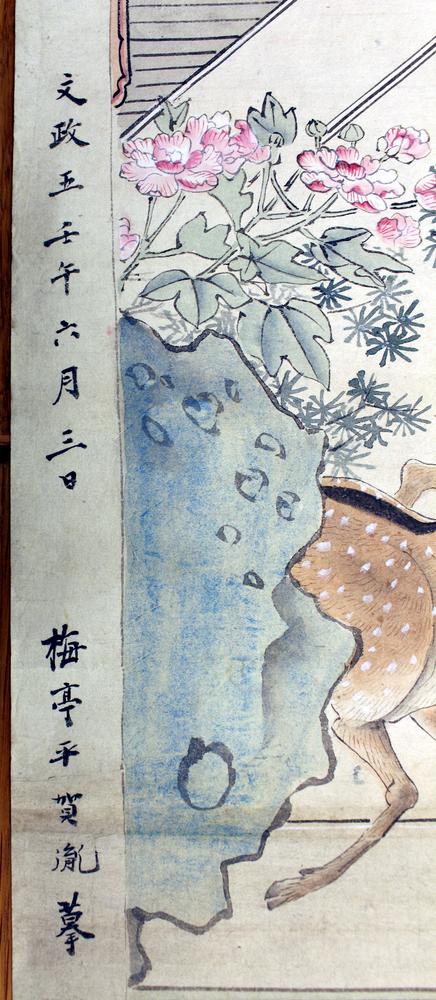 文政五壬午六月三日
梅亭平賀胤摹